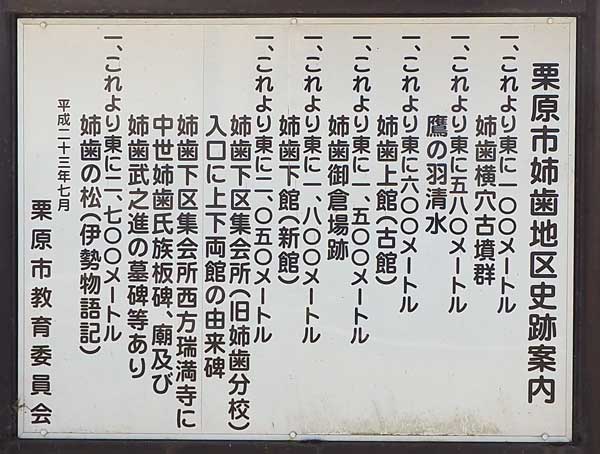 栗原市姉歯地区史跡案内
一、これより東に一〇〇メートル
姉歯横穴古墳群
一、これより東に五八〇メートル
鷹の羽清水
一、これより東に六〇〇メートル
姉歯上館（古館）
一、これより東に一、五〇〇メートル
姉歯御倉場跡
一、これより東に一、八〇〇メートル
姉歯下館（新館）
一、これより東に二、〇五〇メートル
姉歯下区集会所（旧姉歯分校）
入口に上下両館の由来碑
姉歯下区集会所西方瑞満寺に
中世姉歯氏族板碑、廟及び
姉歯武之進の墓碑等あり
一、これより東に二、七〇〇メートル
姉歯の松（伊勢物語記）
平成二十三年七月
栗原市教育委員会